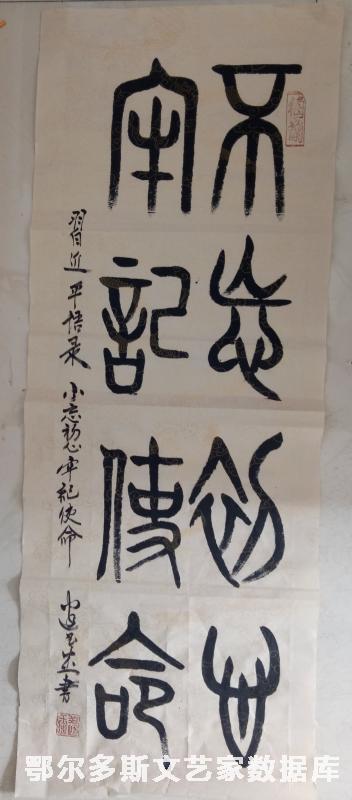 不忘初心
牢記使命
習近平悟录 不忘初心 牢記使命
鄂尔多斯文艺家数据库